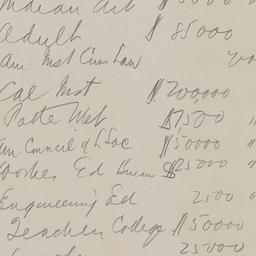 Indian Art $ 5000
Adult $ 85000
Am Met Com Law
Cal Mst $ 700,000
Potte Met $7,500 "
Am Council of L Soc $50000 "
Ed Bureau $25000 "
Engineering Ed 2500 "
Teachers College $50000
25000